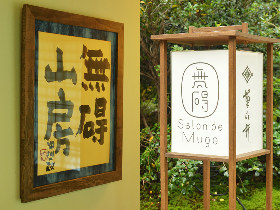 無碍
山房
無碍
Salon de
Muge
菊乃井